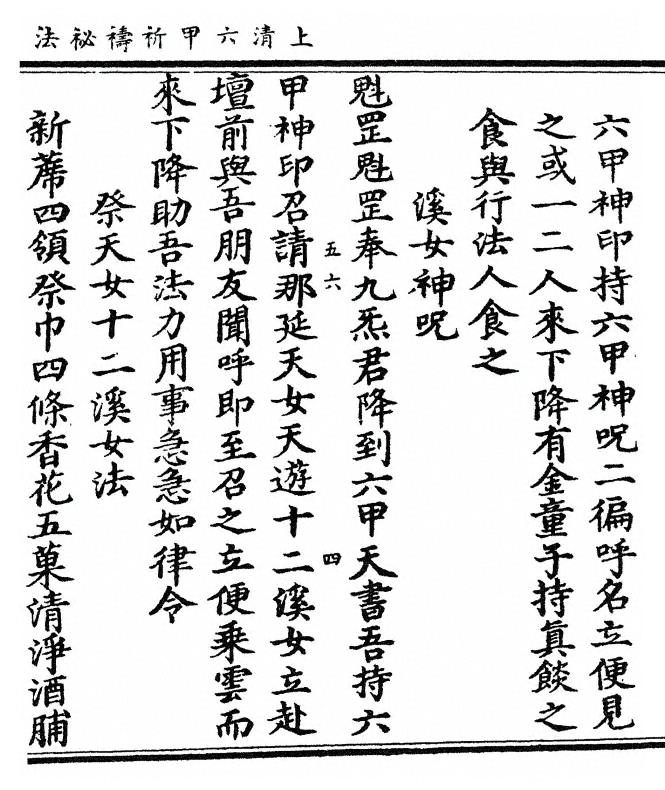 上清六甲祈禱祕法
六甲神印持六甲神呪二徧呼名立便見
之或一二人來下降有金童子持眞餤之
食與行法人食之
溪女神呪
魁罡魁罡奉九炁君降到六甲天書吾持六
五六
四
甲神印召請那延天女天遊十二溪女立赴
壇前與吾朋友聞呼即至召之立便乘雲而
來下降助吾法力用事急急如律令
祭天女十二溪女法
新蓆四領祭巾四條香花五菓清淨酒脯